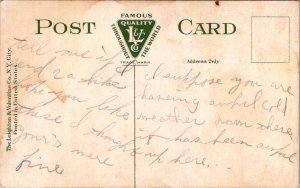 POST CARD
FAMOUS
QUALITY
THROUGHOUT
THE WORLD
L & V Co
TRADE MARK
Address Only
The Leighton & Valentine Co., N. Y. City.
Printed in United States.
tell me if
and
you like
I thought
yours were
fine
I suppose you are
having awful cold
weather down there
it has been awful
up here.